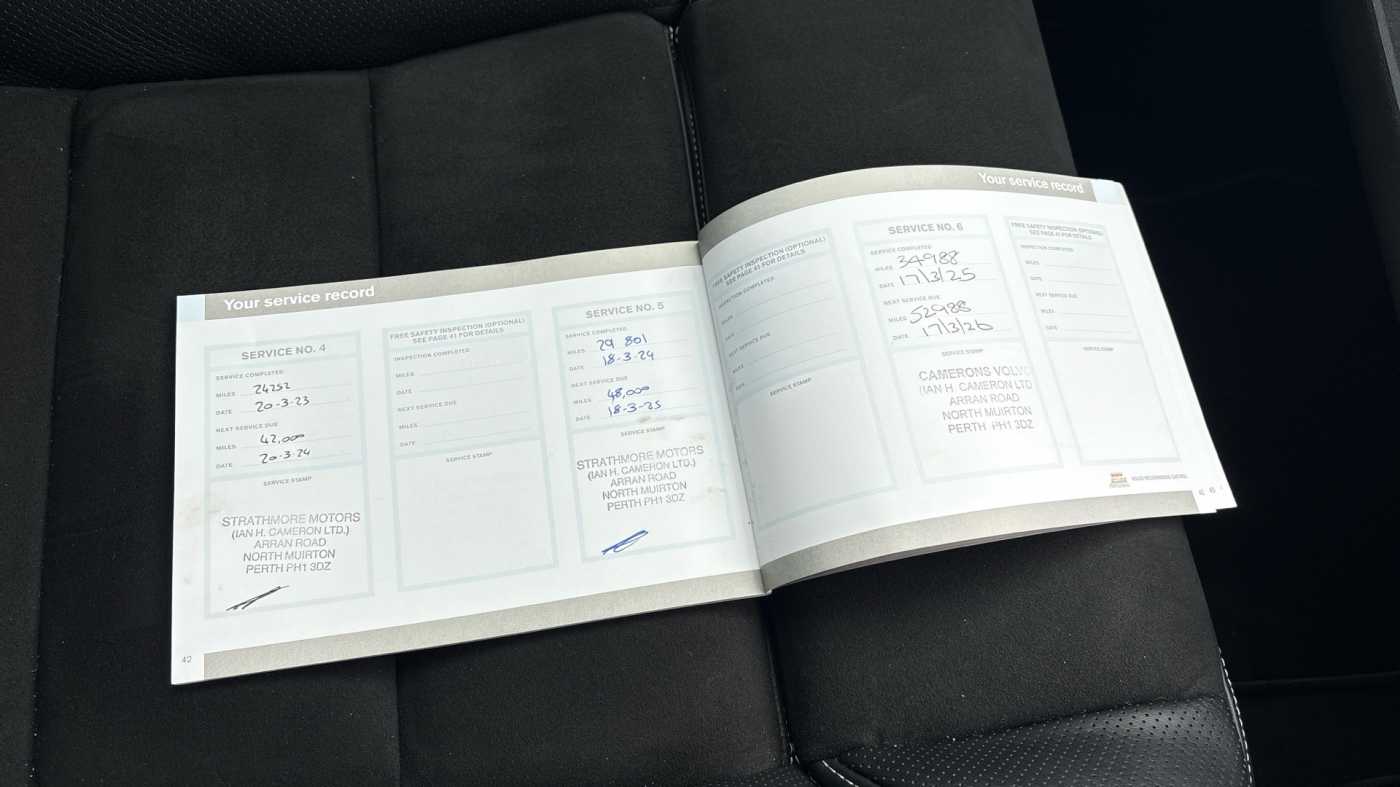 Your service record
SERVICE NO. 4
SERVICE COMPLETED:
MILES 24252
DATE 20-3-23
NEXT SERVICE DUE
MILES 42,000
DATE 20-3-24
SERVICE STAMP
STRATHMORE MOTORS
(IAN H. CAMERON LTD.)
ARRAN ROAD
NORTH MUIRTON
PERTH PH1 3DZ
42
FREE SAFETY INSPECTION (OPTIONAL)
SEE PAGE 41 FOR DETAILS
INSPECTION COMPLETED:
MILES
DATE
NEXT SERVICE DUE
MILES
DATE
SERVICE STAMP
SERVICE NO. 5
SERVICE COMPLETED:
MILES 29 801
DATE 18-3-24
NEXT SERVICE DUE
MILES 48,000
DATE 18-3-25
SERVICE STAMP
STRATHMORE MOTORS
(IAN H. CAMERON LTD.)
ARRAN ROAD
NORTH MUIRTON
PERTH PH1 3DZ
Your service record
FREE SAFETY INSPECTION (OPTIONAL)
SEE PAGE 41 FOR DETAILS
INSPECTION COMPLETED:
MILES
DATE
NEXT SERVICE DUE
MILES
DATE
SERVICE STAMP
SERVICE NO. 6
SERVICE COMPLETED:
MILES 34988
DATE 17/3/25
NEXT SERVICE DUE
MILES 52988
DATE 17/3/26
SERVICE STAMP
CAMERONS VOLVO
(IAN H. CAMERON LTD
ARRAN ROAD
NORTH MUIRTON
PERTH PH1 3DZ
FREE SAFETY INSPECTION (OPTIONAL)
SEE PAGE 41 FOR DETAILS
INSPECTION COMPLETED:
MILES
DATE
NEXT SERVICE DUE
MILES
DATE
SERVICE STAMP
VOLVO RECOMMENDS CASTROL